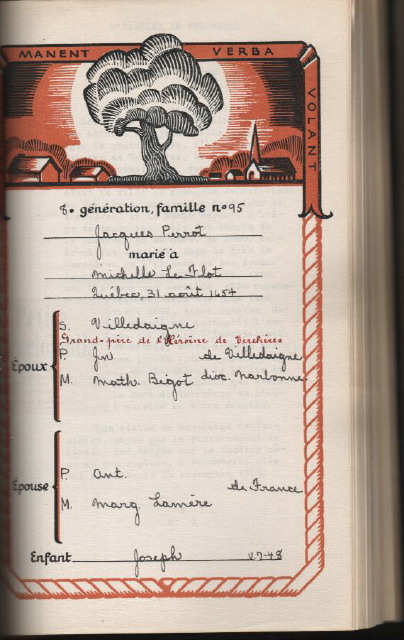 MANENT VERBA VOLANT
8e génération, famille no 95
Jacques Perrot
marié à
Michelle Le Flot
Québec, 31 août 1654
S. Villedaigne
Grand-père de l'Héroïne de Verchères
Époux
P. Jn de Villedaigne
M. Math. Bigot dioc. Narbonne
P. Ant.
Épouse
de France
M. Marg. Lamère
Enfant Joseph V-7-48